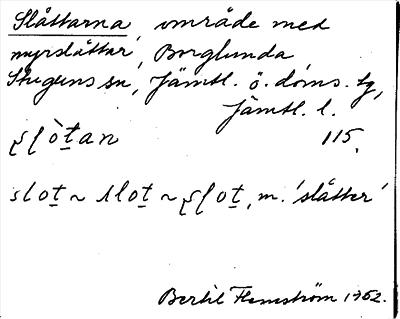 Slåttarna, område med
myrslåttar, Borglunda
Stuguns sn, Jämtl. ö. doms. tg,
Jämtl. l.
ʂɭòt̲an 115.
slot̲ ~ ɹlot̲ ~ ʂɭot̲, m. 'slåtter'
Bertil Flemström 1962.